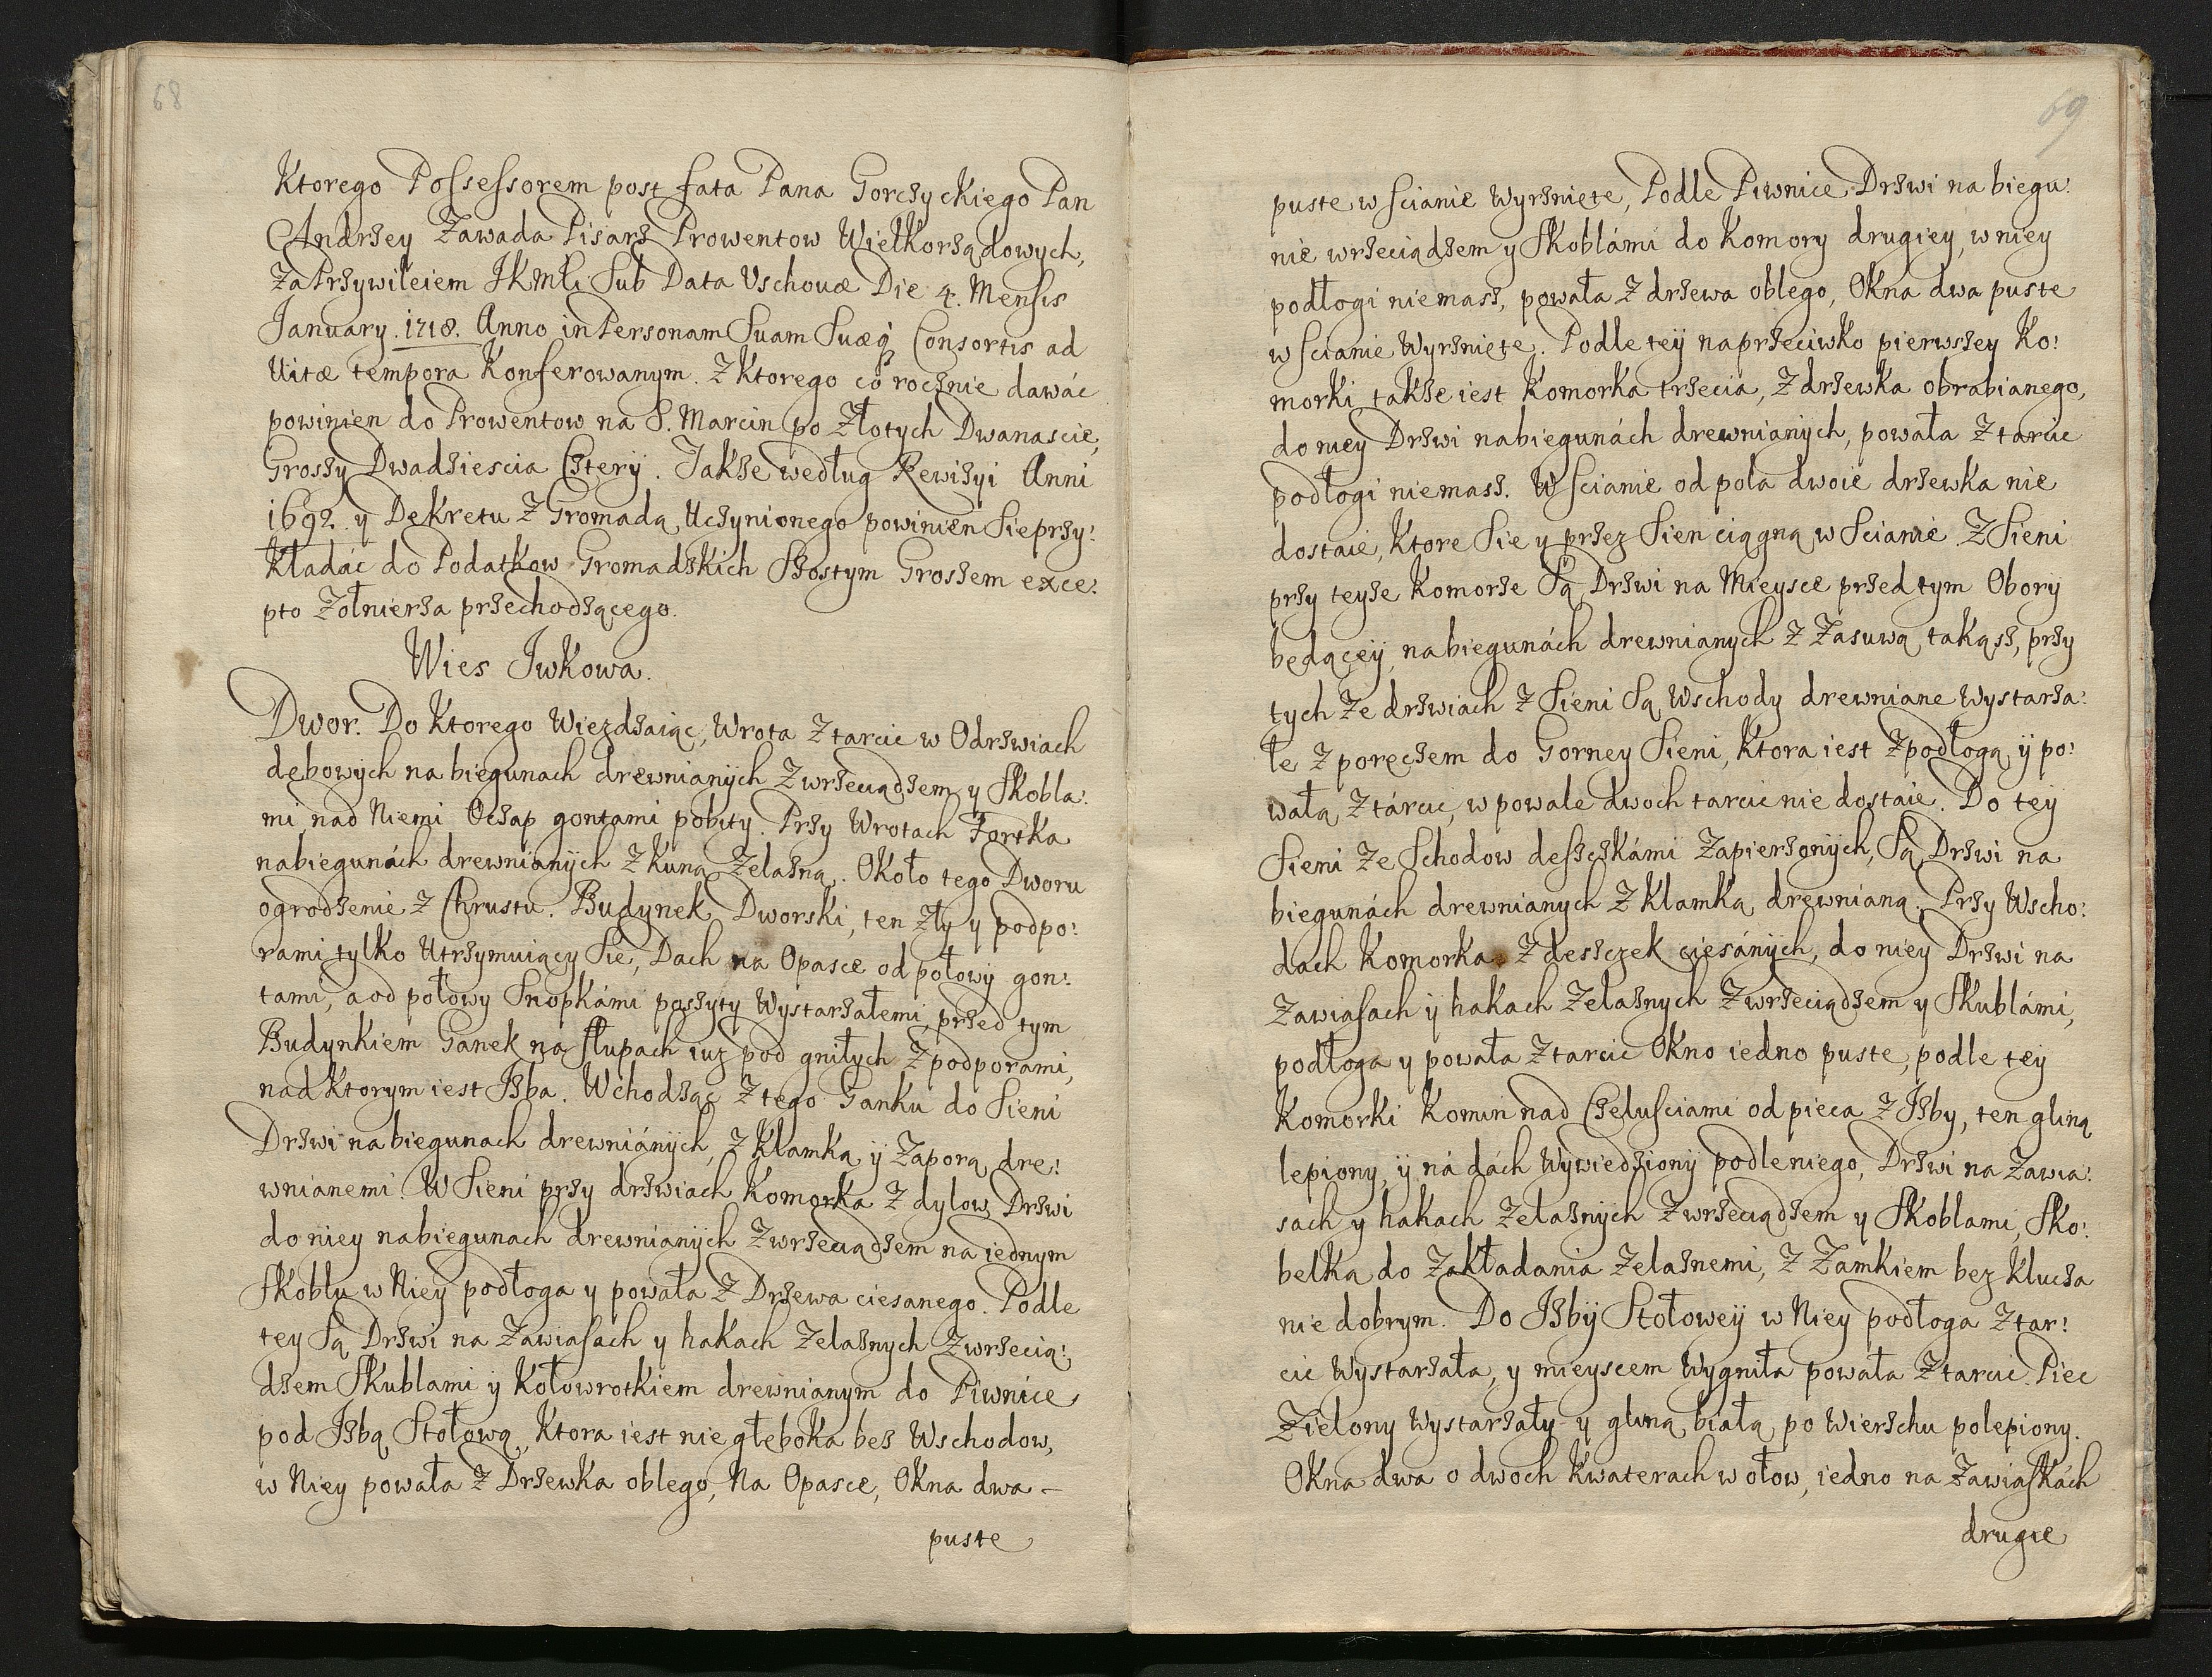 68
Ktorego Possessorem post fata Pana Gorczyckiego Pan
Andrzey Zawada Pisarz Prowentow Wielkorządowych,
Za Przywileiem JKMłi Sub Data Vschovæ Die 4. Mensis
January. 1718. Anno in Personam Suam Suæq́ Consortis ad
Vitæ tempora Konferowanym. Z Ktorego co rocznie dawáć
powinien do Prowentow na S. Marcin po Złotych Dwanascie,
Groszy Dwadziescia Cztery. Takze według Rewizyi Anni
1692. y Dekretu Z Gromadą Uczynionego powinien Sie przy:
kładáć do Podatkow Gromadzkich Szostym Groszem exce:
pto Zołnierza przechodzącego.
Wies Jwkowa.
Dwor. Do Ktorego Wiezdzaiąc, Wrota Z tarcic w Odrzwiach
dębowych na biegunach drewnianÿch Z wrzeciądzem y Skobla:
mi, nad Niemi Oczap gontami pobity. Przy Wrotach Fortka
na biegunách drewnianÿch Z Kuną Zelazną. Około tego Dworu
ogrodzenie Z Chrustu. Budynek Dworski, ten Zły y podpo:
rami tylko Utrzymuiący Sie, Dach na Opasce od połowy gon:
tami, a od połowy Snopkámi poszyty Wystarzałemi, przed tym
Budynkiem Ganek na Słupach iuz pod gniłych Z podporami,
nad Ktorym iest Jzba. Wchodząc Z tego Ganku do Sieni
Drzwi na biegunach drewniánÿch, Z Klamką ÿ Zaporą dre:
wnianemi. W Sieni przy drzwiach Komorka Z dylow, Drzwi
do niey na biegunach drewnianÿch Z wrzeciądzem na iednym
Skoblu w Niey podłoga y powała Z Drzewa ciesanego. Podle
tey Są Drzwi na Zawiasach y hakach Zelaznych Z wrzecią:
dzem Skublami ÿ Kołowrotkiem drewnianym do Piwnice
pod Jzbą Stołową, Ktora iest nie głeboka bez Wschodow,
w Niey powała Z Drzewka oblego, Na Opasce, Okna dwa –
puste
69
puste w scianie Wyrznięte, Podle Piwnice Drzwi na biegu:
nie wrzeciądzem y Skoblámi do Komory drugiey, w niey
podłogi niemasz, powała Z drzewa oblego, Okna dwa puste
w scianie Wyrznięte. Podle teÿ naprzeciwko pierwszey Ko:
morki takze iest Komorka trzecia, Z drzewka obrabianego,
do niey Drzwi na biegunách drewnianÿch, powała Z tarcic
podłogi niemasz. W scianie od pola dwoie drzewka nie
dostaie, Ktore Sie y przez Sien ciągną w Scianie. Z Sieni
przy teyze Komorze Są Drzwi na Mieysce przed tym Obory
będąceÿ, na biegunách drewnianych Z Zasuwą takąsz, przy
tych Ze drzwiach Z Sieni Są Wschody drewniane Wystarza:
łe Z poręczem do Gorney Sieni, Ktora iest Z podłogą ÿ po:
wałą Z tárcic, w powale dwoch tarcic nie dostaie. Do teÿ
Sieni Ze Schodow desczkámi Zapierzonÿch, Są Drzwi na
biegunách drewnianych Z Klamką drewnianą. Przy Wscho:
dach Komorka Z desczek ciesánÿch, do niey Drzwi na
Zawiasach ÿ hakach Zelaznych Z wrzeciądzem y Skublámi,
podłoga y powała Z tarcic Okno iedno puste, podle teÿ
Komorki Komin nad Czelusciami od pieca Z Jzby, ten gliną
lepiony, ÿ ná dách Wÿwiedzionÿ podle niego, Drzwi na Zawia:
sach y hakach Zelaznÿch Z wrzeciądzem y Skoblami, Sko:
belką do Zakładania Zelaznemi, Z Zamkiem bez Klucza
nie dobrym. Do Jzbÿ Stołoweÿ w Niey podłoga Z tar:
cic Wystarzała, y mieyscem Wygniła powała Z tarcic. Piec
Zielony Wystarzały y gliną białą po Wierzchu polepiony.
Okna dwa o dwoch Kwaterach w ołow, iedno na Zawiaskách
drugie